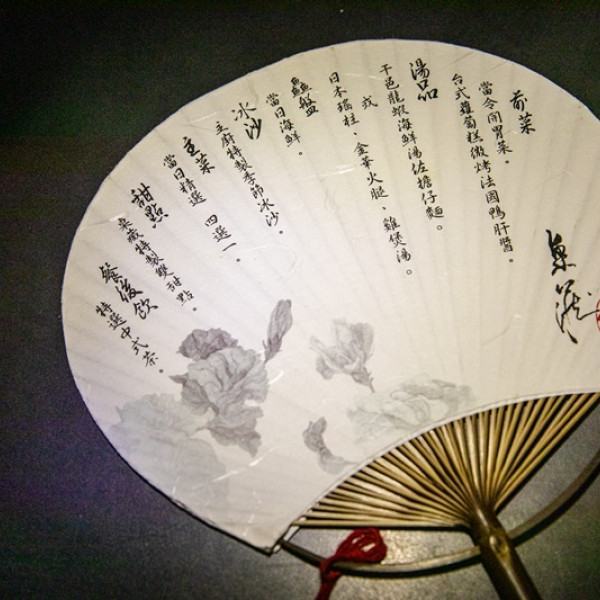 食藏
前菜
當令開胃菜。
台式蘿蔔糕微烤法國鴨肝醬。
湯品
干邑龍蝦海鮮湯佐擔仔麵。
或
日本瑤柱、金華火腿、雞煲湯。
鱻盤
當日海鮮。
冰沙
主廚特製季節冰沙。
主菜
當日精選 四選一。
甜點
食藏特製雙甜點。
餐後飲
特選中式茶。